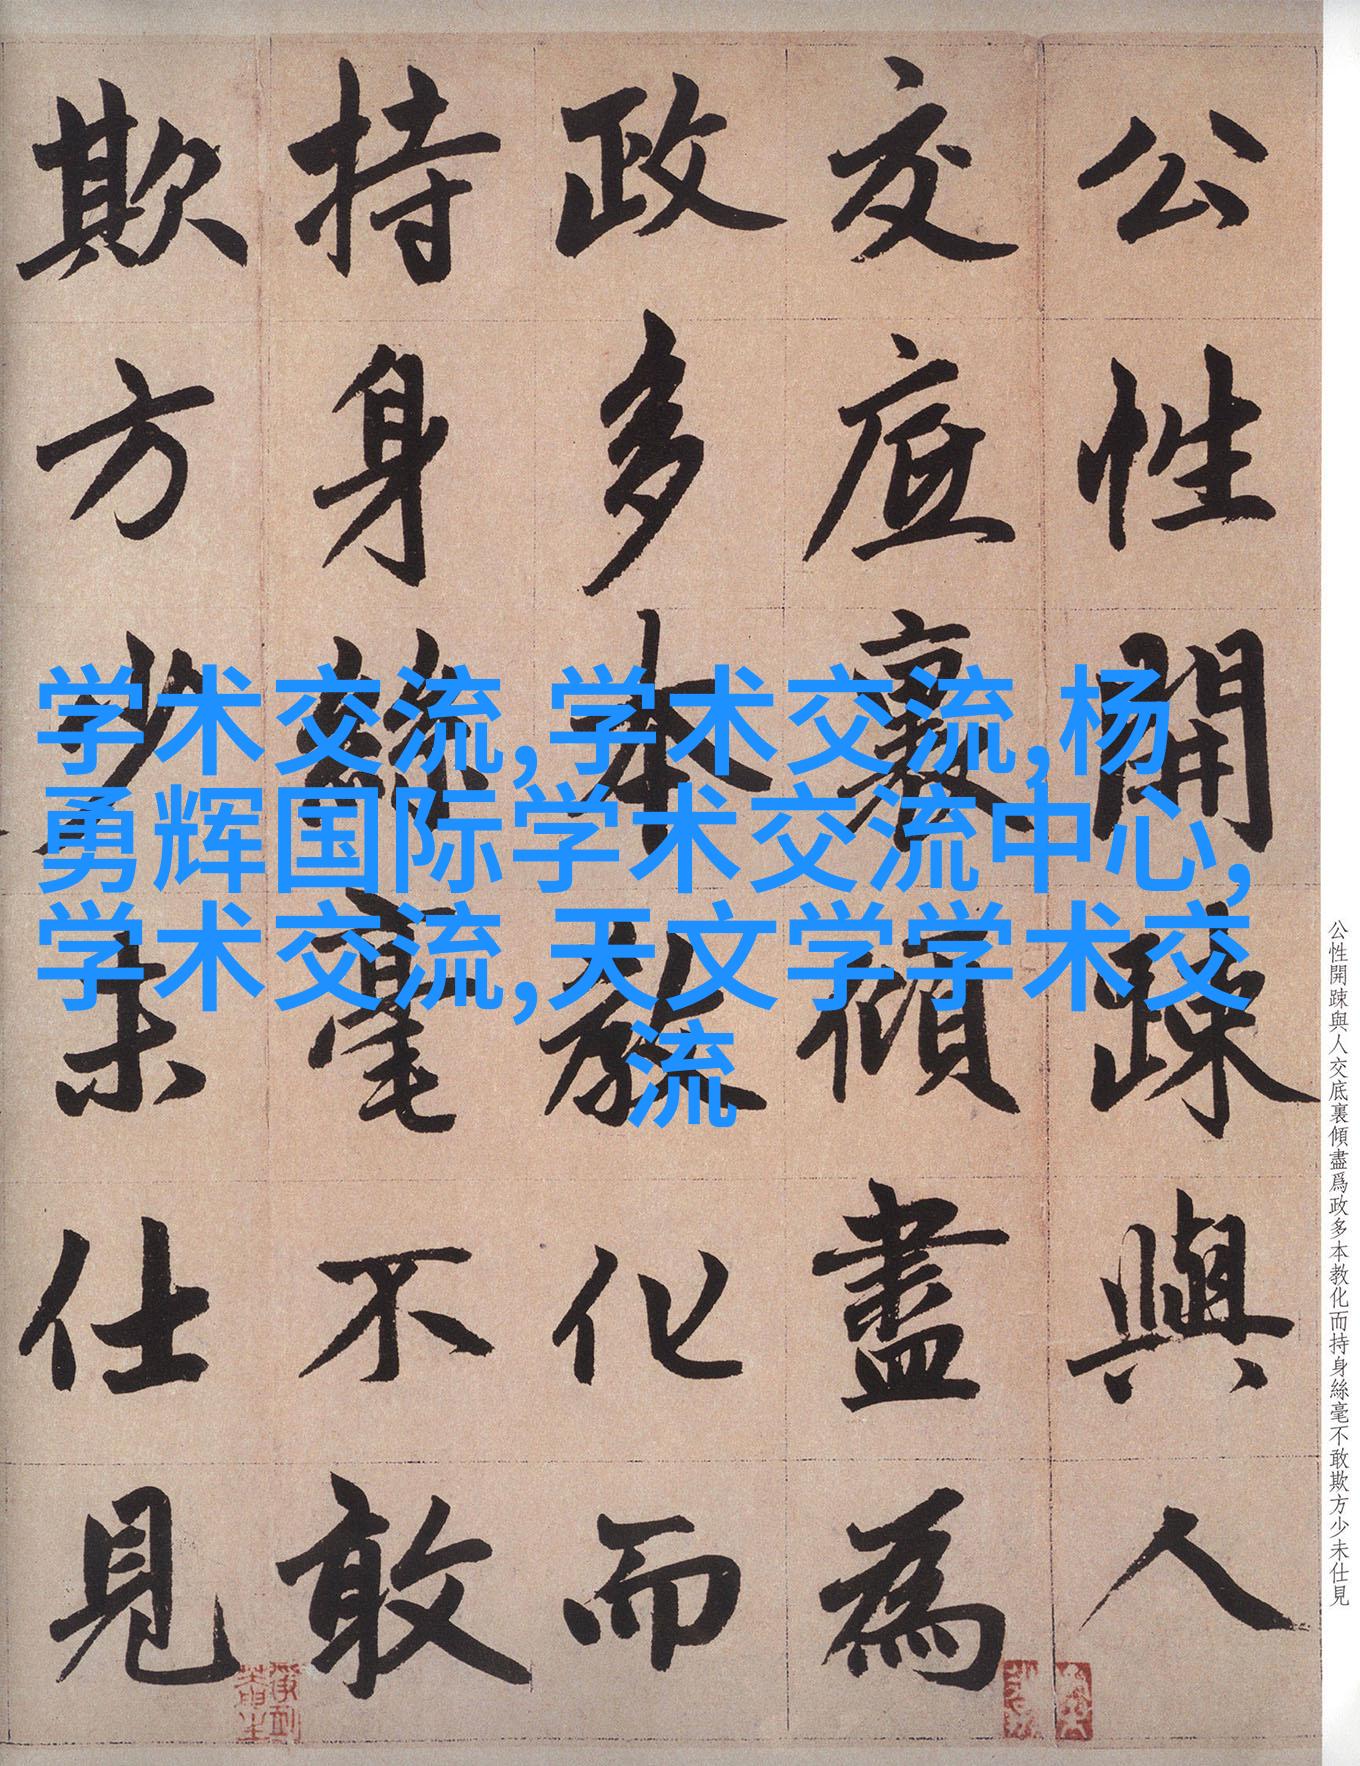 公性開踈與人
交底裏傾盡為
政多本教化而
持身絲毫不敢
欺方少未仕見
学术交流,学术交流,杨
勇辉国际学术交流中心,
学术交流,天文学学术交
流
公性開踈與人交底裏傾盡爲政多本教化而持身絲毫不敢欺方少未仕見